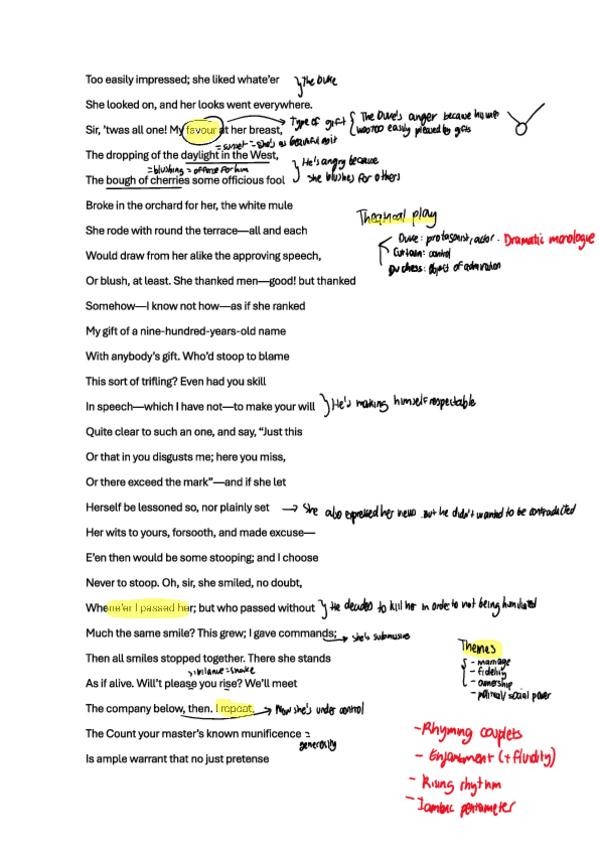 Too easily impressed; she liked whate'er } The Duke
She looked on, and her looks went everywhere.
Sir, 'twas all one! My favour at her breast, → Type of gift { The Duke's anger because
was too easily pleased by gifts
= sunset = she's as beautiful as it
The dropping of the daylight in the West, } He's angry because
= blushing = offense for him
The bough of cherries some officious fool she blushes for others
Broke in the orchard for her, the white mule
Theatrical play
She rode with round the terrace—all and each
Duke: protagonist, actor. Dramatic monologue
Would draw from her alike the approving speech,
Curtain: control
Duchess: object of admiration
Or blush, at least. She thanked men—good! but thanked
Somehow—I know not how—as if she ranked
My gift of a nine-hundred-years-old name
With anybody's gift. Who'd stoop to blame
This sort of trifling? Even had you skill
In speech—which I have not—to make your will } He's making himself respectable
Quite clear to such an one, and say, "Just this
Or that in you disgusts me; here you miss,
Or there exceed the mark"—and if she let
Herself be lessoned so, nor plainly set → She also expressed her views but he didn't wanted to be contradicted
Her wits to yours, forsooth, and made excuse—
E'en then would be some stooping; and I choose
Never to stoop. Oh, sir, she smiled, no doubt,
Whene'er I passed her; but who passed without } He decided to kill her in order to not being humiliated
Much the same smile? This grew; I gave commands; → she's submissive
Themes
Then all smiles stopped together. There she stands
- marriage
- fidelity
- ownership
- political/social power
sibilance = snake
As if alive. Will't please you rise? We'll meet
The company below, then. I repeat, → Now she's under control
The Count your master's known munificence =
generosity
Is ample warrant that no just pretense
- Rhyming couplets
- Enjambment (+ fluidity)
- Rising rhythm
- Iambic pentameter